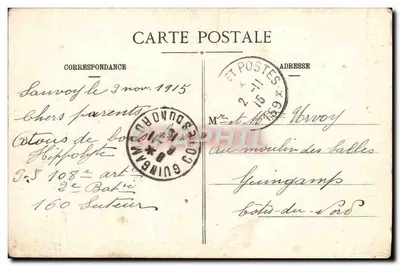 CARTE POSTALE
CORRESPONDANCE
ADRESSE
Sauvoy le 3 nov. 1915
Chers parents
à tous de bo
Hippolyte
P.S 108me art
2e Batie
160 Secteur
ET POSTES
2-11
15
*159*
GUINGAMP
COTES DU NORD
Mr et Mme Urvoy
au moulin des Salles
Guingamp
Côtes-du-Nord